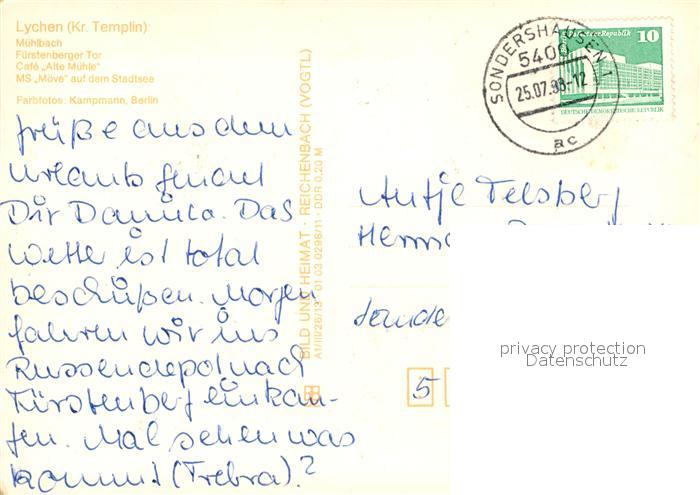 Lychen (Kr. Templin):
Mühlbach
Fürstenberger Tor
Café „Alte Mühle"
MS „Möve" auf dem Stadtsee
Farbfotos: Kampmann, Berlin
Grüße aus dem
Urlaub sendet
Dir Daniela. Das
Wetter ist total
beschißen. Morgen
fahren wir ins
Russendepot nach
Fürstenberg einkau-
fen. Mal sehen was
kommt (Trebra)?
BILD UND HEIMAT · REICHENBACH (VOGTL)
A1/III/26/13 01 03 0296/11 · DDR 0,20 M
SONDERSHAUSEN 1
5400
25.07.90-12
ac
10
DEUTSCHE DEMOKRATISCHE REPUBLIK
Antje Felsberg
Sonde
5
privacy protection
Datenschutz